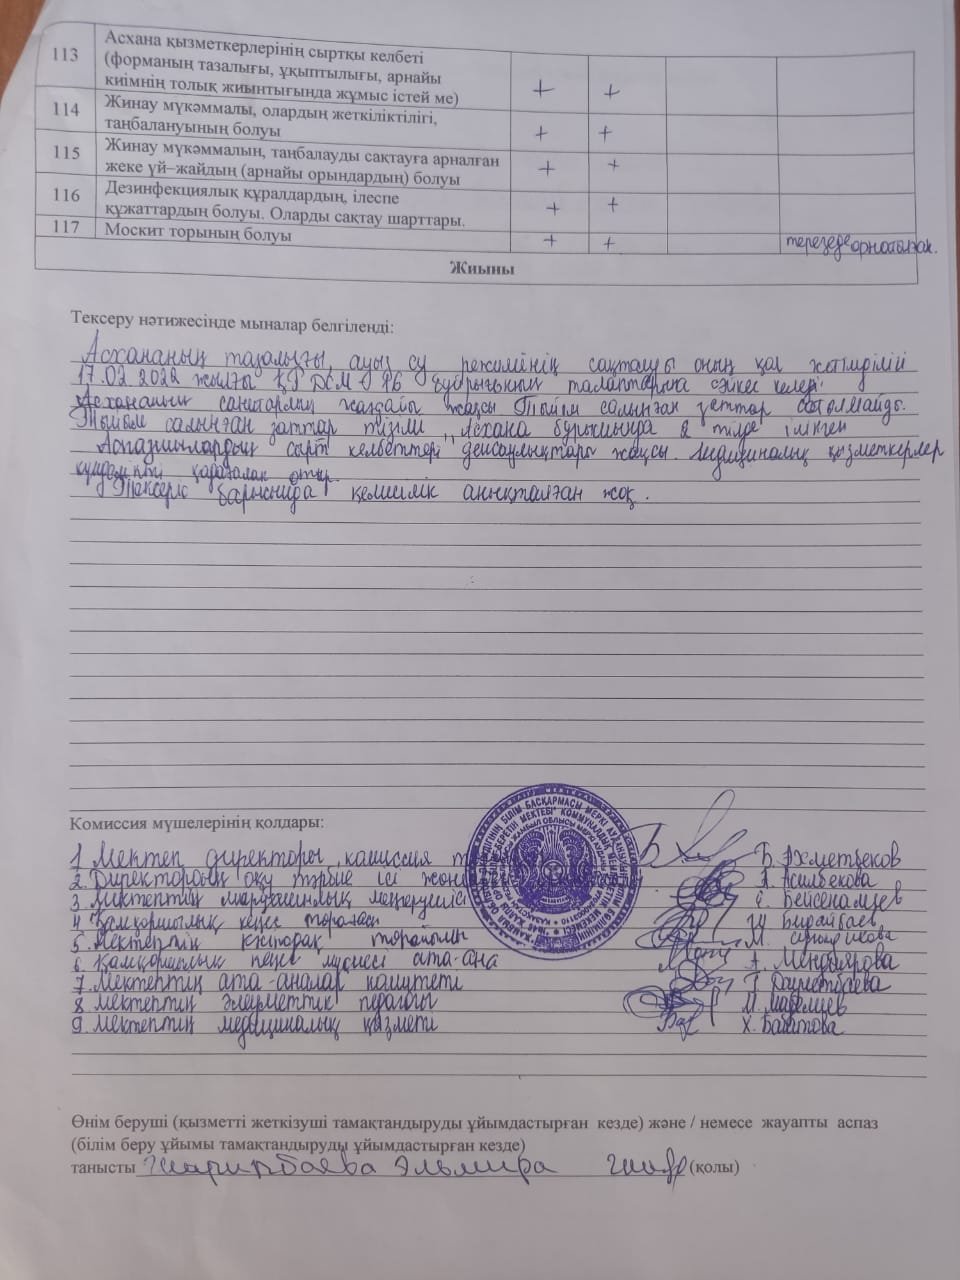 113 Асхана қызметкерлерінің сыртқы келбеті
(форманың тазалығы, ұқыптылығы, арнайы
киімнің толық жиынтығында жұмыс істей ме) + +
114 Жинау мүкәммалы, олардың жеткіліктілігі,
таңбалануының болуы + +
115 Жинау мүкәммалын, таңбалауды сақтауға арналған
жеке үй–жайдың (арнайы орындардың) болуы + +
116 Дезинфекциялық құралдардың, ілеспе
құжаттардың болуы. Оларды сақтау шарттары. + +
117 Москит торының болуы + + терезеде орнатылған.
Жиыны
Тексеру нәтижесінде мыналар белгіленді:
Асхананың тазалығы, ауыз су режимінің сақталуы оның қол жетімділігі
17.02.2022 жылғы ҚР ДСМ бұйрығының талаптарына сәйкес келеді
Асхананың санитарлық жағдайы жақсы Тыйым салынған заттар сатылмайды.
Тыйым салынған заттар тізімі Асхана бұрышында 2 тілде ілінген
Аспазшылардың сырт келбеттері денсаулықтары жақсы. Медициналық қызметкерлер
күнделікті қадағалап отыр.
Тексеріс барысында кемшілік анықталған жоқ.
Комиссия мүшелерінің қолдары:
1 Мектеп директоры, комиссия Б. Ахметбеков
2. Директордың оқу тәрбие ісі Асилбекова
3. Мектептің меңгерушісі С. Бейсеналиев
4 Қамқоршылық кеңес төрағасы
5. Мектептің кәсіподақ төрайымы М.
6. Қамқоршылық кеңес мүшесі ата-ана А. Мендиярова
7. Мектептің ата-аналар комитеті Г.
8. Мектептің әлеуметтік педагогі
9. Мектептің медициналық қызметі Х. Баратова
Өнім беруші (қызметті жеткізуші тамақтандыруды ұйымдастырған кезде) және / немесе жауапты аспаз
(білім беру ұйымы тамақтандыруды ұйымдастырған кезде)
танысты Шарипбаева Эльмира (қолы)